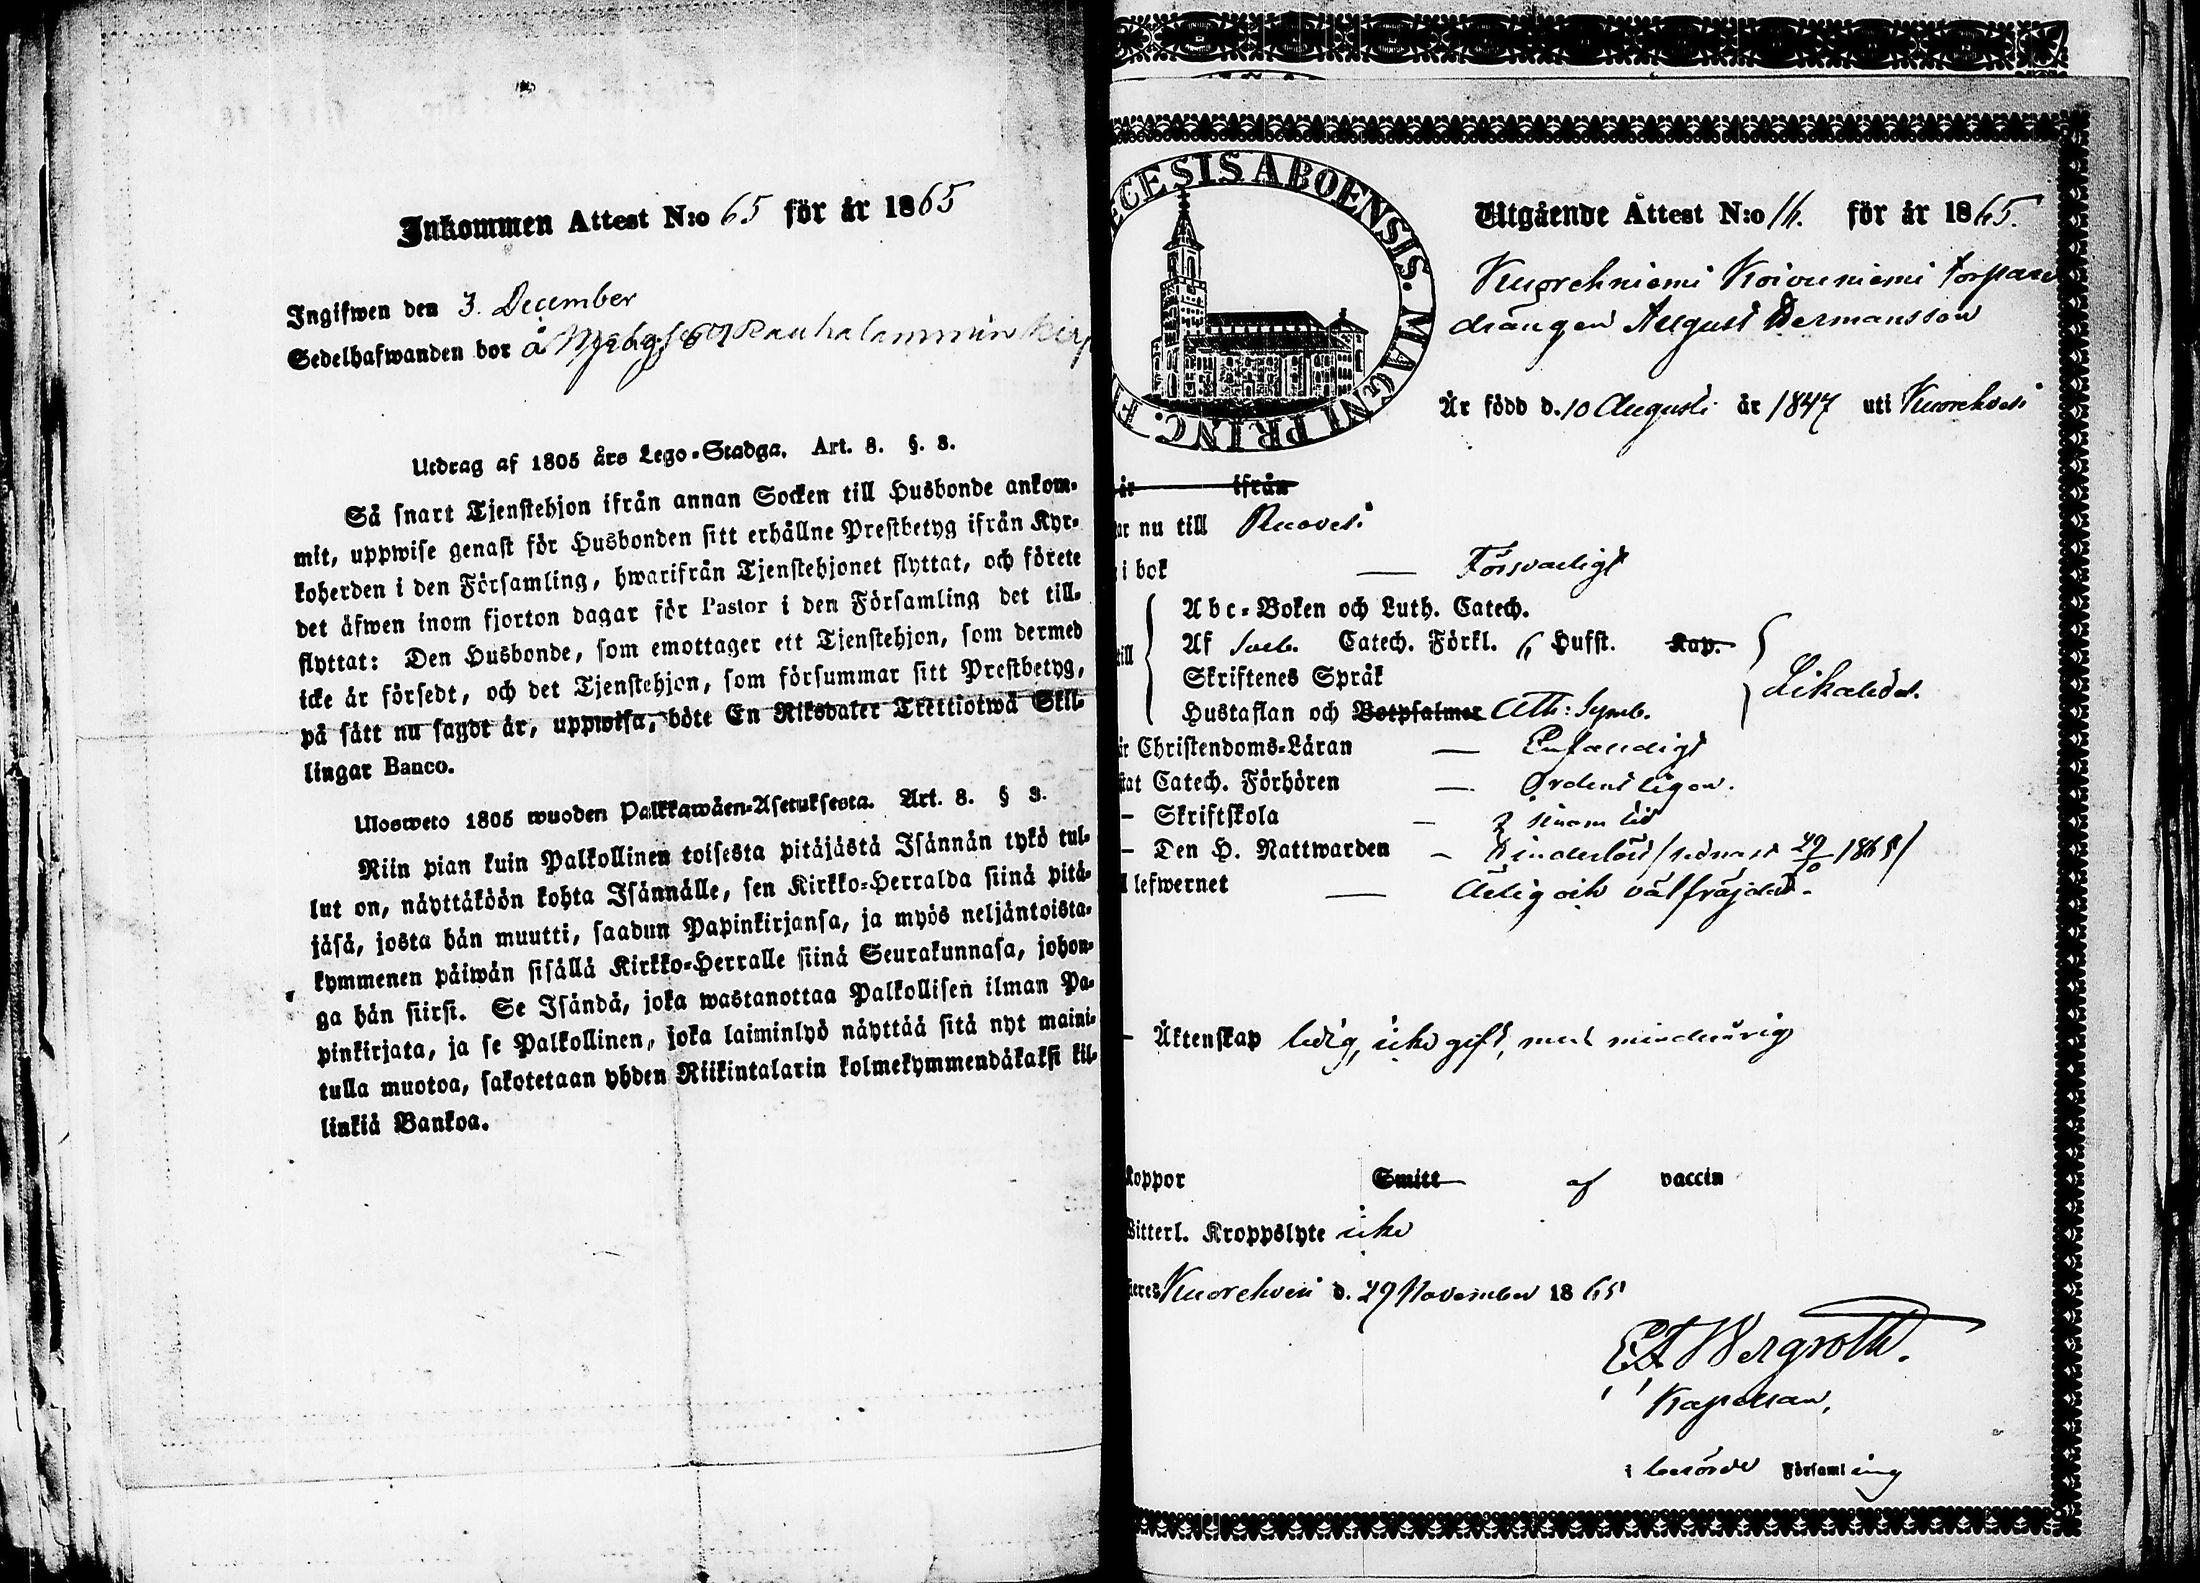 Inkommen Attest N:o 65 för år 1865
Ingifwen den 3. December
Sedelhafwanden bor å
Utdrag af 1805 års Lego-Stadga. Art. 8. §. 8.
Så snart Tjenstehjon ifrån annan Socken till Husbonde ankom-
mit, uppwise genast för Husbonden sitt erhållne Prestbetyg ifrån Kyr-
koherden i den Församling, hwarifrån Tjenstehjonet flyttat, och förete
det äfwen inom fjorton dagar för Pastor i den Församling det till-
flyttat: Den Husbonde, som emottager ett Tjenstehjon, som dermed
icke är försedt, och det Tjenstehjon, som försummar sitt Prestbetyg,
på sätt nu sagdt är, uppwisa, böte En Riksdaler Trettiotwå Skil-
lingar Banco.
Ulosweto 1805 wuoden Palkkawäen-Asetuksesta. Art. 8. § 8.
Niin pian kuin Palkollinen toisesta pitäjästä Isännän tykö tul-
lut on, näyttäköön kohta Isännälle, sen Kirkko-Herralda siinä pitä-
jäsä, josta hän muutti, saadun Papinkirjansa, ja myös neljäntoista-
kymmenen päiwän sisällä Kirkko-Herralle siinä Seurakunnasa, johon-
ga hän siirsi. Se Isändä, joka wastanottaa Palkollisen ilman Pa-
pinkirjata, ja se Palkollinen, joka laiminlyö näyttää sitä nyt maini-
tulla muotoa, sakotetaan yhden Riikintalarin kolmekymmendäkaksi kil-
linkiä Bankoa.
ECESIS ABOENSIS. MAGNI PRINC. F
Utgående Attest N:o 16. för år 1865.
Kuorehniemi Koivuniemi torpare
drängen August Hermansson
Är född d. 10 Augusti år 1847 uti Kuorehvesi
är ifrån
ar nu till Ruovesi
i bok — Försvarligt
till Abc-Boken och Luth. Catech.
Af Sveb. Catech. Förkl. Hufst. Kap.
Skriftenes Språk
Likaledes.
Hustaflan och Botpsalmer Ath: Symb.
är Christendoms-Läran — Enfaldigt
stat Catech. Förhören — Ordentligen.
— Skriftskola —
— Den H. Nattwarden — 1865
l lefwernet — Ärlig och välfräjdad.
— Äktenskap ledig, icke gift, men minderårig
koppor Smitt af vaccin
Witterl. Kroppslyte icke
eres Kuorehvesi d. 29 November 1865
E A Bergroth.
Kapellan,
i berörde Församling